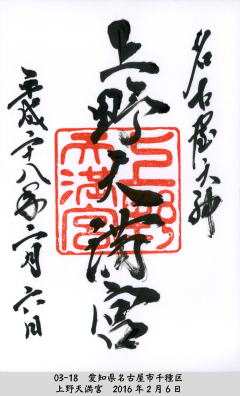 名古屋天神
上野天満宮
上野天満宮
平成二十八年二月六日
03-18 愛知県名古屋市千種区
上野天満宮 2016年2月6日